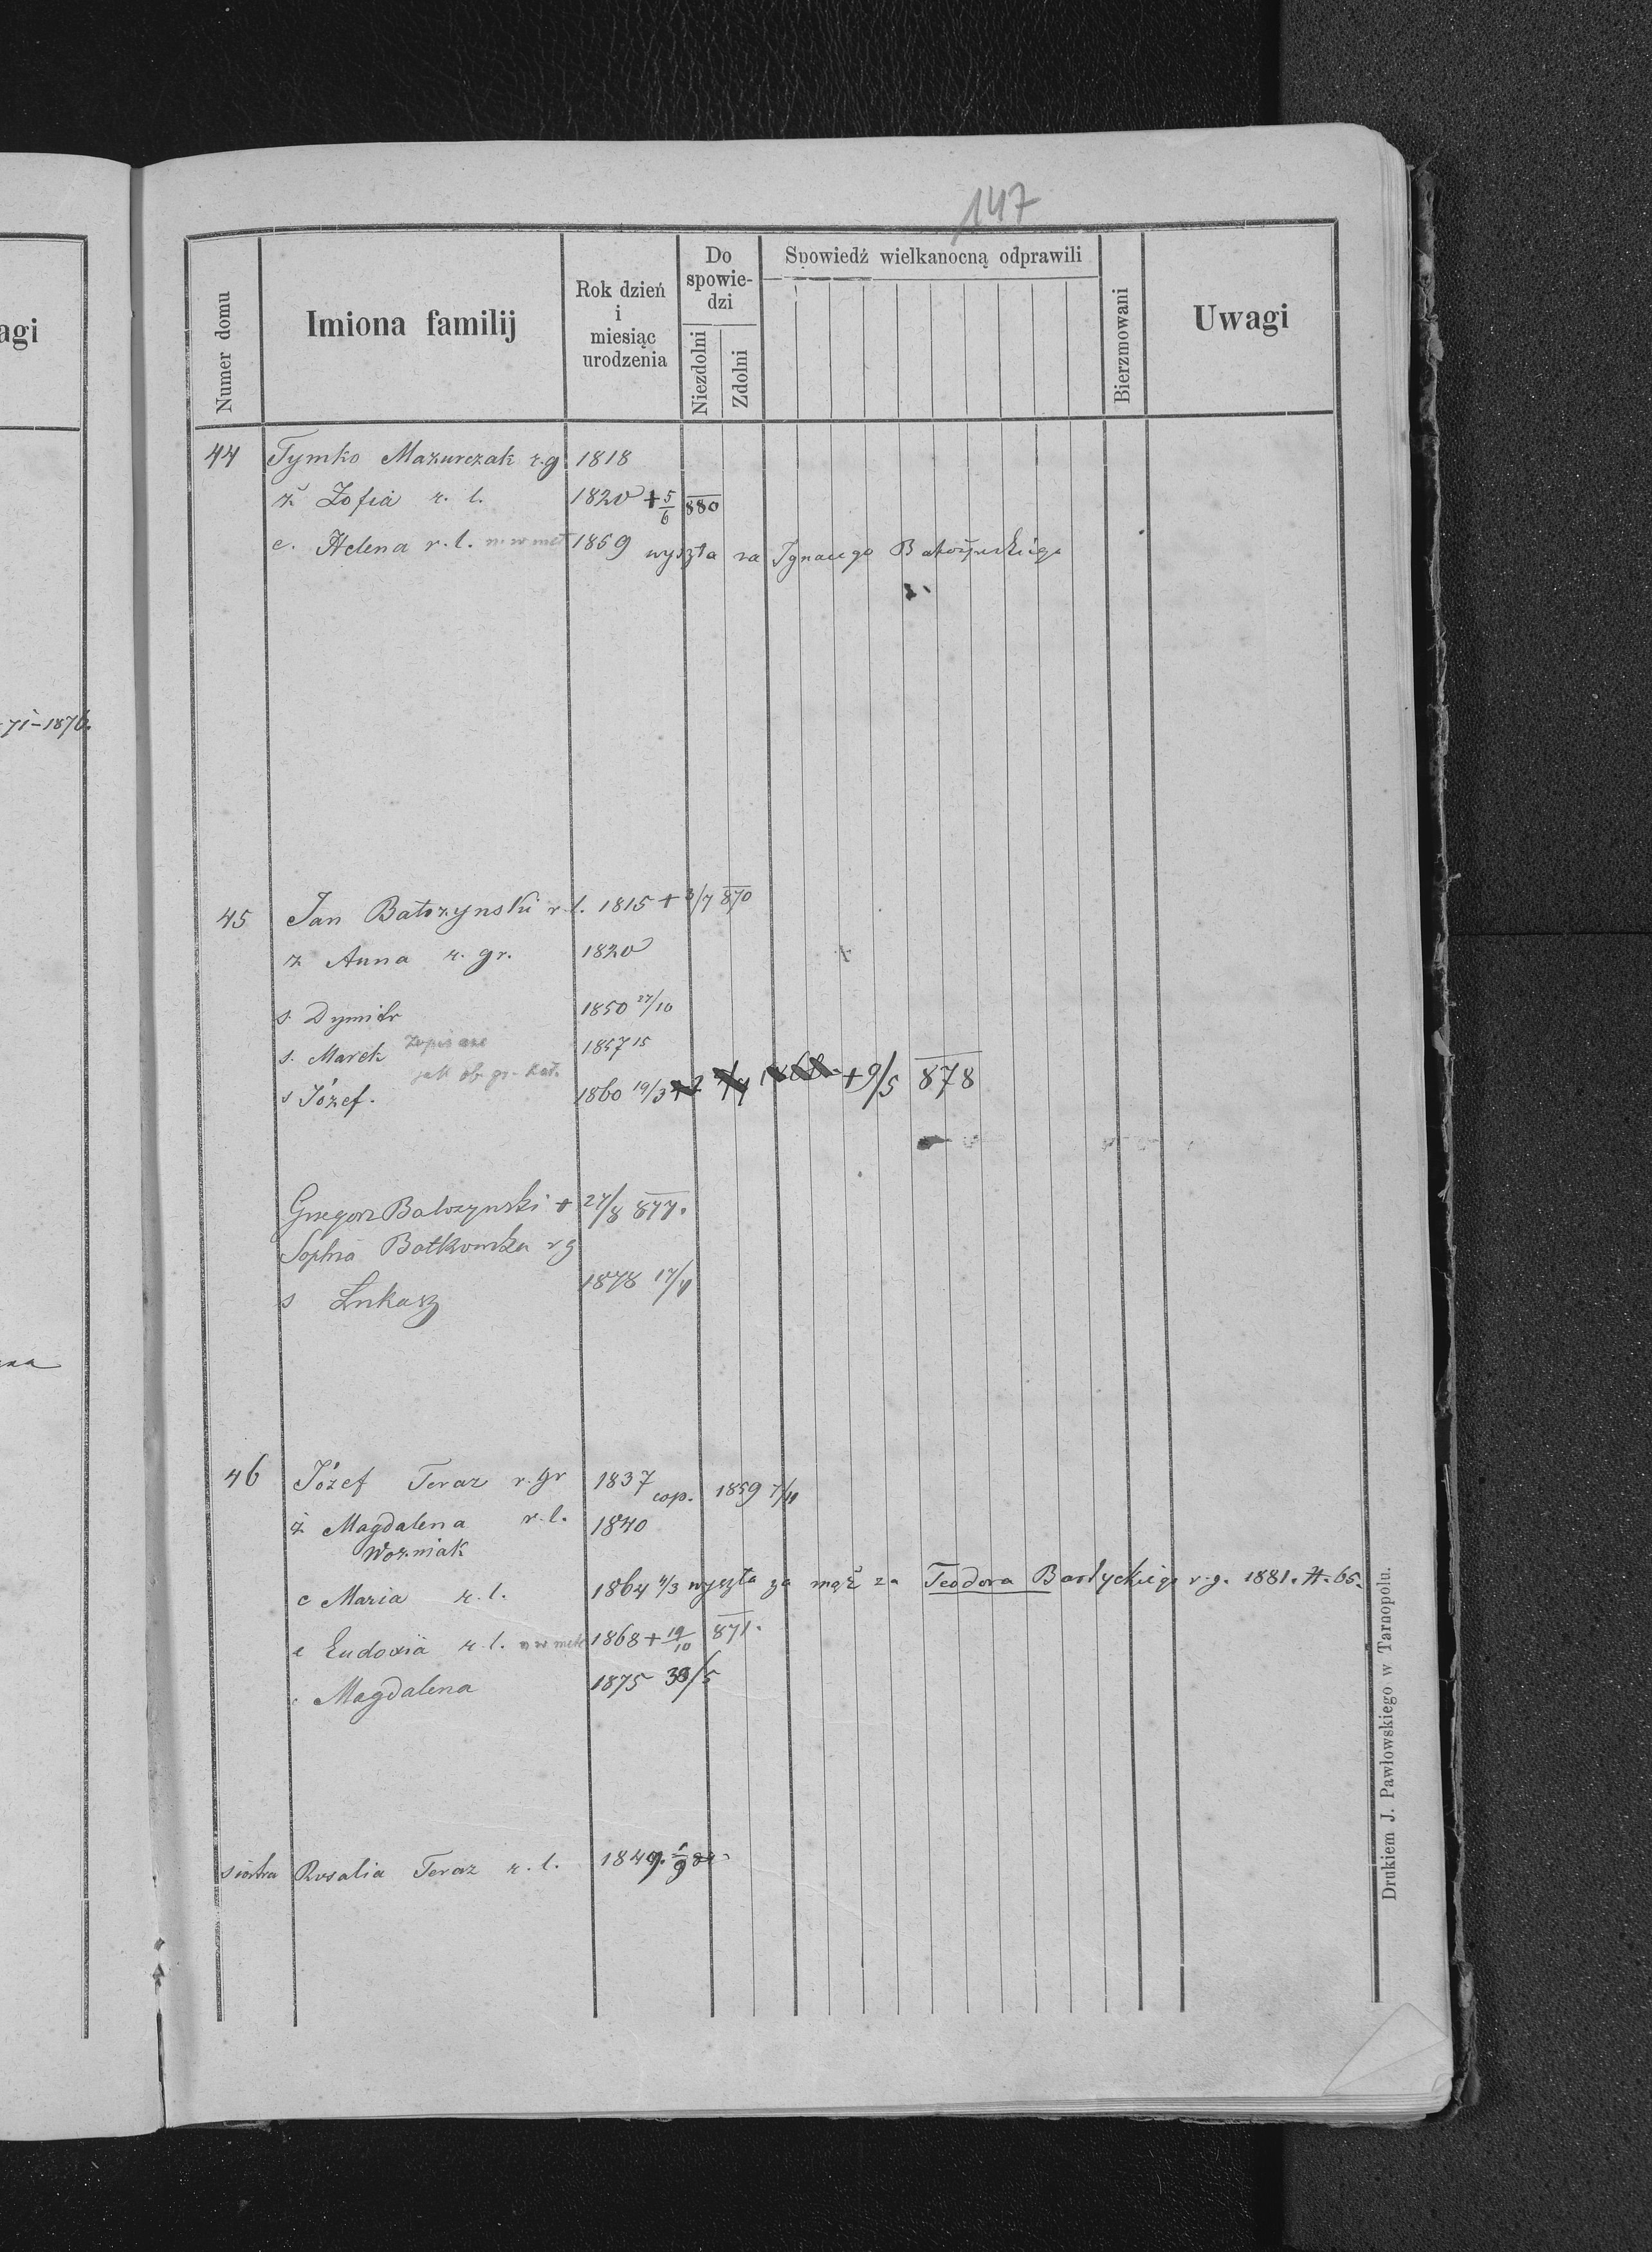 147
agi
Numer domu
Imiona familij
Rok dzień
i
miesiąc
urodzenia
Do
spowie-
dzi
Niezdolni
Zdolni
Spowiedź wielkanocną odprawili
Bierzmowani
Uwagi
44 Tymko Mazurczak r.g 1818
ż Zofia r. l. 1820 + 5/6 880
c. Helena r. l. n. w met 1859 wyszła za Ignacego Bałożyńskiego
71-1876.
45 Jan Bałozynski r. l. 1815 + 3/7 870
ż Anna r. gr. 1820
s. Dymitr 1850 27/10
s. Marek zapisane 1857 15
jak ob. gr-kat.
s Józef. 1860 19/3 + 9/5 878
Grzegorz Balozynski + 27/8 877.
Sophia r g
s Łukasz 1878 17/
46 Józef Teraz r. gr 1837 cop. 1859 7/11
ż Magdalena r. l. 1840
Wozniak
c Maria r. l. 1864 4/3 wyszła za mąż za Teodora Bartyckiego r. g. 1881. H. 65.
c Eudoxia r. l. n w met 1868 + 19/10 871.
c Magdalena 1875 /5
siostra Rosalia Teraz r. l. 1849.
Drukiem J. Pawłowskiego w Tarnopolu.